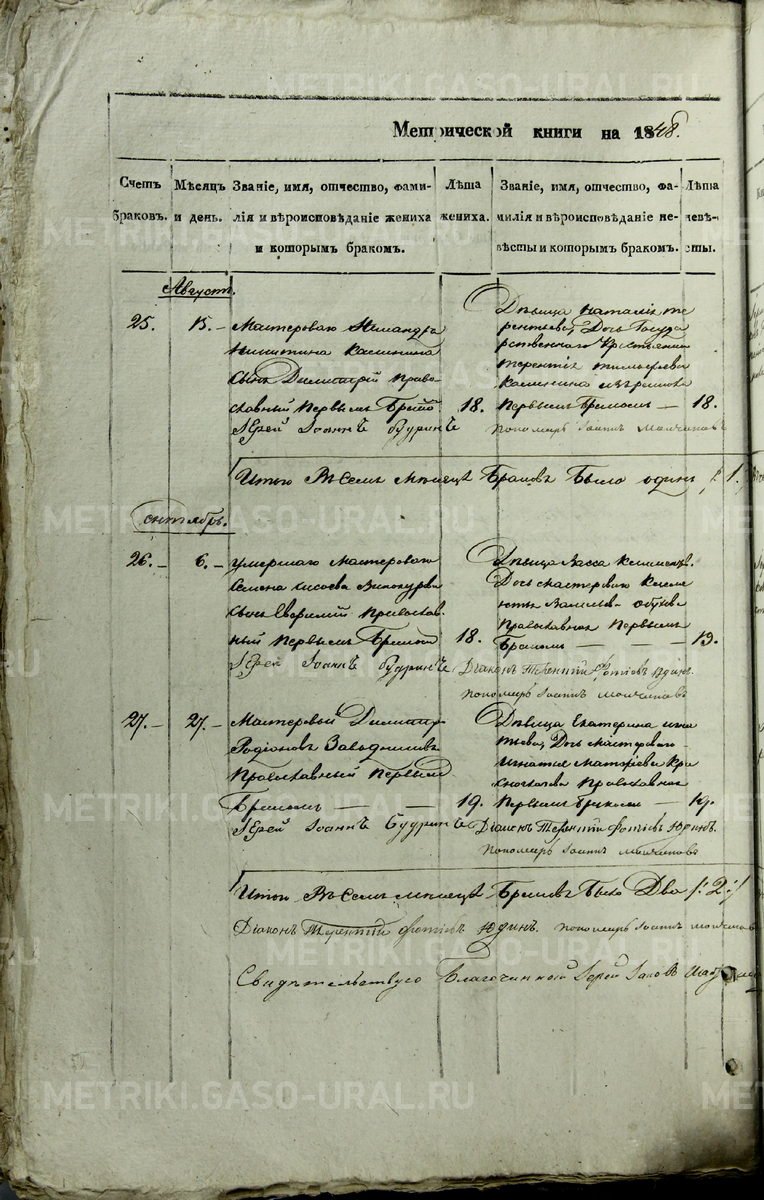 Метрической книги на 1848.
Счетъ браковъ.
Мѣсяцъ и день.
Званіе, имя, отчество, фами-
лія и вѣроисповѣданіе жениха
и которымъ бракомъ.
Лѣта жениха.
Званіе, имя, отчество, фа-
милія и вѣроисповѣданіе не-
вѣсты и которымъ бракомъ.
Лѣта невѣ-
сты.
Августъ.
25.
15.
Мастероваго
Никитина Калинина
Сынъ Димитрій Право-
славный Первымъ
18.
Іерей Іоаннъ Будринъ
Дѣвица Наталія Те-
рентьева, Дочь Госуда
рственнаго Крестьянина
Терентія Тимофѣева
Калинина
Первымъ Бракомъ — 18.
Пономарь Іоаннъ Молчановъ
Итого Въ Семъ Мѣсяцѣ Браковъ Было одинъ /: 1. :/
Сентябрь.
26.
6.
Умершаго Мастероваго
Семена Сысоева Винокурова
Сынъ Православ-
ный Первымъ Бракомъ
18.
Іерей Іоаннъ Будринъ
Дѣвица Васса
Дочь Мастероваго Клеме
нтья Васильева Обухова
Православная Первымъ
Бракомъ — — — 19.
Діаконъ Терентій Фотіевъ Юдинъ.
Пономарь Іоаннъ Молчановъ
27.
27.
Мастеровый Димитрій
Родіоновъ Заводчиковъ
Православный Первымъ
Бракомъ — — 19.
Іерей Іоаннъ Будринъ
Дѣвица Екатерина Игна
тьева, Дочь Мастероваго
Игнатія Матфіева Кра
Православная
Первымъ Бракомъ — 19.
Діаконъ Терентій Фотіевъ Юдинъ.
Пономарь Іоаннъ Молчановъ
Итого Въ Семъ Мѣсяцѣ Браковъ Было Два /: 2 :/
Діаконъ Терентій Фотіевъ Юдинъ. Пономарь Іоаннъ Молчановъ
Свидѣтельствую Благочинной Іерей Іаковъ
METRIKI.GASO-URAL.RU